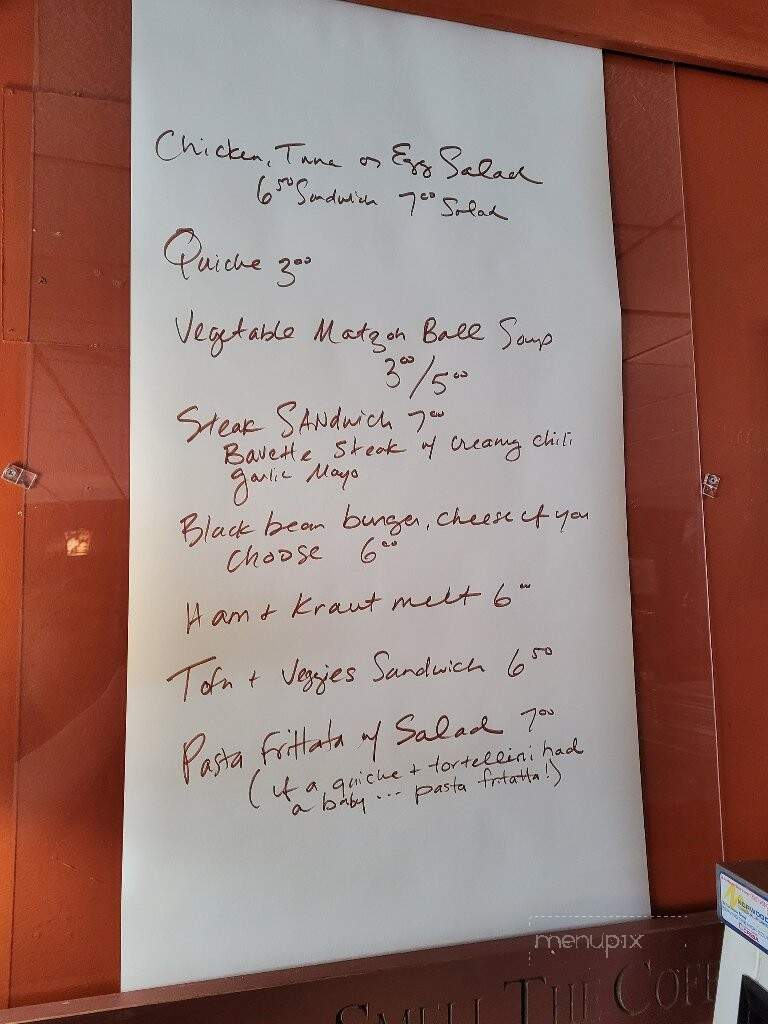 Chicken, Tuna or Egg Salad
6.50 Sandwich 7.00 Salad
Quiche 3.00
Vegetable Matzoh Ball Soup
3.00/5.00
Steak SANdwich 7.00
Bavette Steak w/ creamy chili
garlic Mayo
Black bean burger, cheese if you
choose 6.00
Ham + Kraut melt 6.00
Tofu + Veggies Sandwich 6.50
Pasta frittata w/ Salad 7.00
(if a quiche + tortellini had
a baby... pasta fritatta!)
menupix
SMELL THE COFF